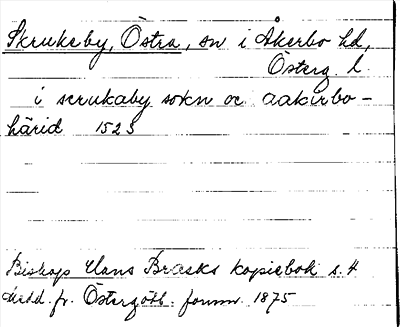 Skrukeby, Östra, sn i Åkerbo hd,
Österg. l.
i scrukaby sokn oc aakirbo-
härid 1523
Biskops Hans Brasks kopiebok s. 4
Medd. fr. Östergötl. fornm. 1875